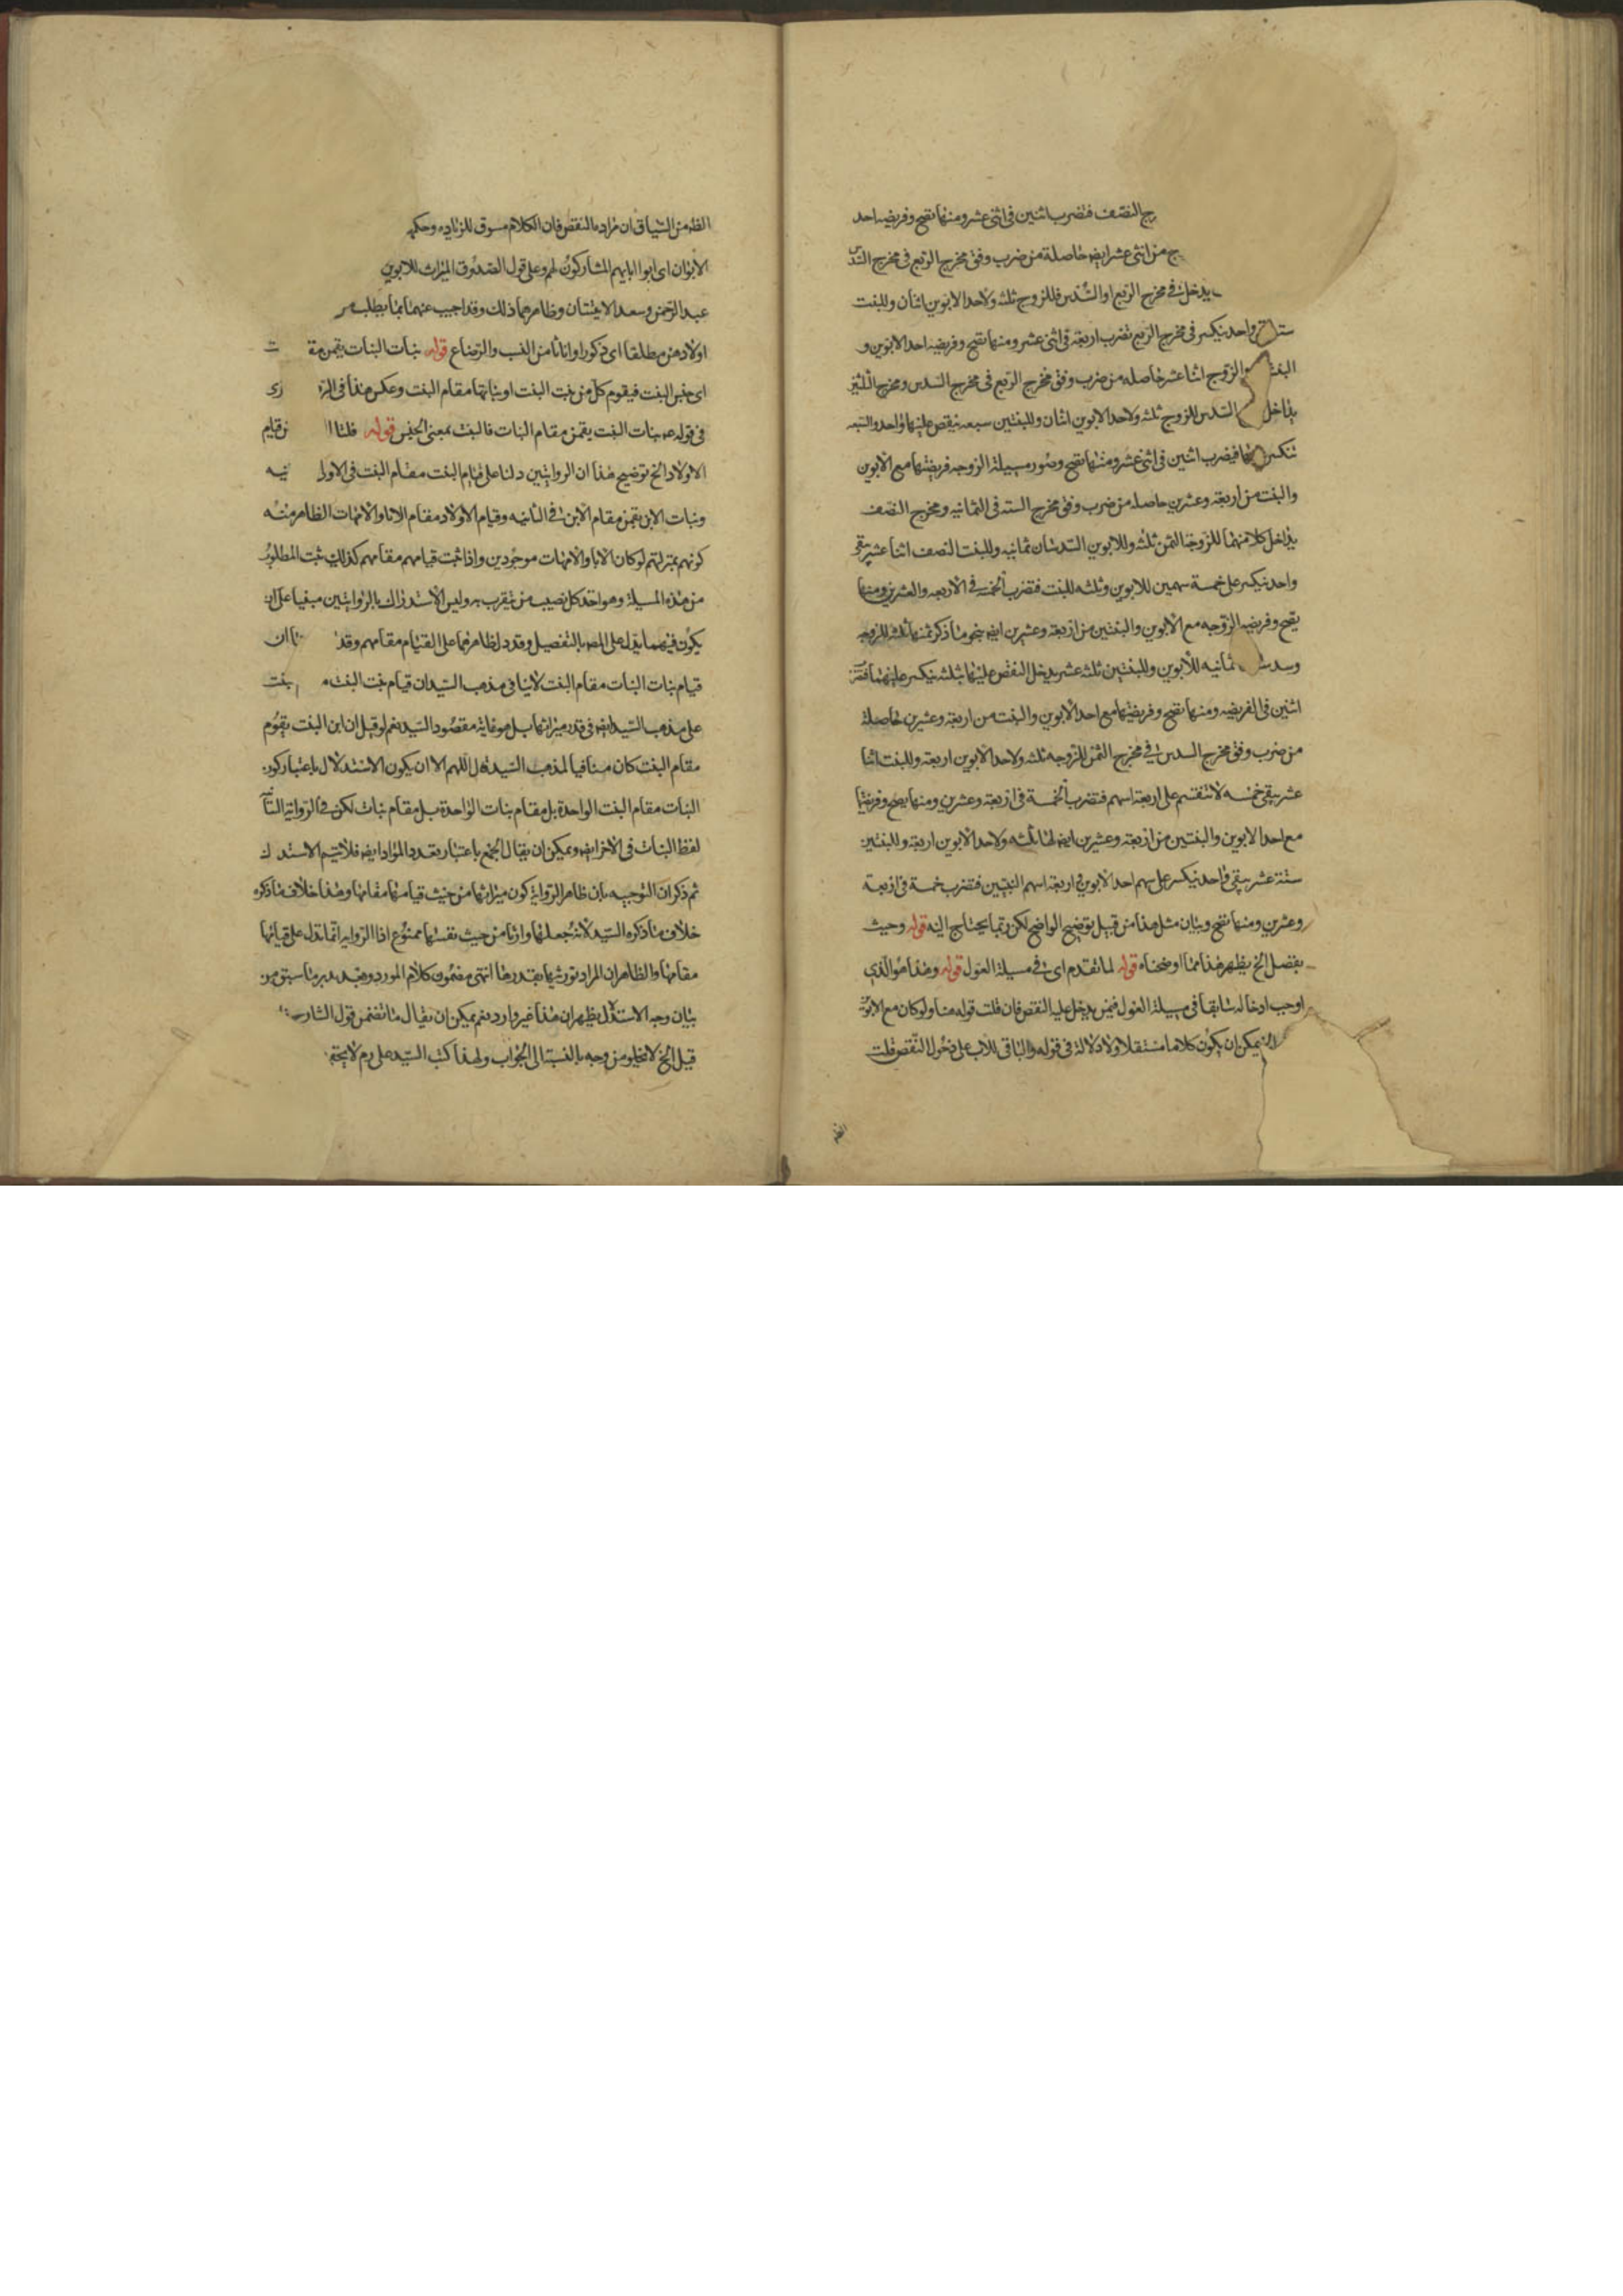 ج النصف فتضرب اثنين فى اثنى عشر ومنها تصح وفريضه احد
ج من اثنى عشر ايضا حاصلة من ضرب وفق مخرج الربع فى مخرج السدس
يدخل فى مخرج الربع او السدس فللزوج ثلثه ولاحد الابوين اثنان وللبنت
ستة واحد ينكسر فى مخرج الربع تضرب اربعة فى اثنى عشر ومنها تصح وفريضه احد الابوين و
البنتين والزوج اثنا عشر حاصله من ضرب وفق مخرج الربع فى مخرج السدس ومخرج الثلثين
يداخل السدس للزوج ثلثه ولاحد الابوين اثنان وللبنتين سبعه ينقص عليهما واحد والسبعه
تنكسر عليهما فيضرب اثنين فى اثنى عشر ومنها تصح وصور مسيلة الزوجه فريضتها مع الابوين
والبنت من اربعة وعشرين حاصله من ضرب وفق مخرج السته فى الثمانيه ومخرج النصف
يداخل كلا منهما للزوجة الثمن ثلثه وللابوين السدسان ثمانيه وللبنت النصف اثنا عشر يبقى
واحد ينكسر على خمسة سهمين للابوين وثلثه للبنت فتضرب الخمسة فى الاربعه والعشرين ومنها
يصح وفريضه الزوجه مع الابوين والبنتين من اربعة وعشرين ايضا بنحو ما ذكر ثمنها ثلثه للزوجه
وسدسا ثمانيه للابوين وللبنتين ثلثه عشر يدخل النقص عليهما بثلثه ينكسر عليهما فتضرب
اثنين فى الفريضه ومنها تصح وفريضتها مع احد الابوين والبنت من اربعة وعشرين حاصلة
من ضرب وفق مخرج السدس فى مخرج الثمن للزوجه ثلثه ولاحد الابوين اربعة وللبنت اثنا
عشر يبقى خمسه لا تنقسم على اربعة اسهم فتضرب الخمسة فى اربعة وعشرين ومنها يصح وفريضتها
مع احد الابوين والبنتين من اربعة وعشرين ايضا لها ثلثه ولاحد الابوين اربعة وللبنتين
ستة عشر يبقى واحد ينكسر على سهم احد الابوين واربعة اسهم البنتين فتضرب خمسة فى اربعة
وعشرين ومنها تصح وبيان مثل هذا من قبيل توضيح الواضح لكن ربما يحتاج اليه قوله وحيث
يفضل الخ يظهر هذا مما اوضحناه قوله لما تقدم اى فى مسيلة العول قوله وهذا هو الذي
اوجب ادخاله سابقا فى مسيلة العول فيمن يدخل عليه النقص فان قلت قوله هنا ولو كان مع الابوين
يمكن ان يكون كلاما مستقلا ولا دلالة فى قوله والباقى للاب على دخول النقص قلت
الظ من السياق ان مراده النقص فان الكلام مسوق للزياده وحكمه
الابوان اى ابوا ابايهم المشاركون لهم وعلى قول الصدوق الميراث للابوين
عبد الرحمن وسعد الاتيتان وظاهرهما ذلك وقد اجيب عنهما بما يطلب من
اولادهن مطلقا اى ذكورا او اناثا من النسب والرضاع قوله بنات البنات يقمن مقا
اى جنس البنت فيقوم كل من بنت البنت او بناتها مقام البنت وعكس هذا فى
فى قوله عم بنات البنت يقمن مقام البنات فالبنت بمعنى الجنس قوله فلنا من قيام
الاولاد الخ توضيح هذا ان الروايتين دلتا على قيام البنت مقام البنت فى الاولى
وبنات الابن يقمن مقام الابن فى الثانيه وقيام الاولاد مقام الابا والامهات الظاهر منه
كونهم بمنزلتهم لو كان الابا والامهات موجودين واذا ثبت قيامهم مقامهم كذلك ثبت المطلوب
من هذه المسيلة وهو اخذ كل نصيب من يتقرب به وليس الاستدراك بالروايتين مبنيا على ان
يكون فيهما ما يدل على المص بالتفصيل وقد دل ظاهرهما على القيام مقامهم وقد ان
قيام بنات البنات مقام البنت لا ينافى مذهب السيد ان قيام بنت البنت
على مذهب السيد ايضا فى قدر ميراثها بل هو غاية مقصود السيد نعم لو قيل ان ابن البنت يقوم
مقام البنت كان منافيا لمذهب السيد قال اللهم الا ان يكون الاستدلال باعتبار كون
البنات مقام البنت الواحدة بل مقام بنات الواحدة بل مقام بنات لكن فى الرواية الثا
لفظ البنات فى الاخر ايضا ويمكن ان يقال الجمع باعتبار تعدد المواد ايضا فلا يتم الاستد ك
ثم ذكر ان التوجيه بان ظاهر الرواية كون ميراثها من حيث قيامها مقامها وهذا خلاف ما ذكره
خلاف ما ذكره السيد لانه جعلها وارثا من حيث نفسها ممنوع اذ الروايه انما تدل على قيامها
مقامها والظاهر ان المراد توريثها بقدرها انتهى مضمون كلام المورد وبعد تدبر ما سبق من
بيان وجه الاستدل يظهر ان هذا غير وارد نعم يمكن ان يقال ما تضمن قول الشارح
قيل الخ لا يخلو من وجه بالنسبة الى الجواب ولهذا كتب السيد على رم لا يحتم